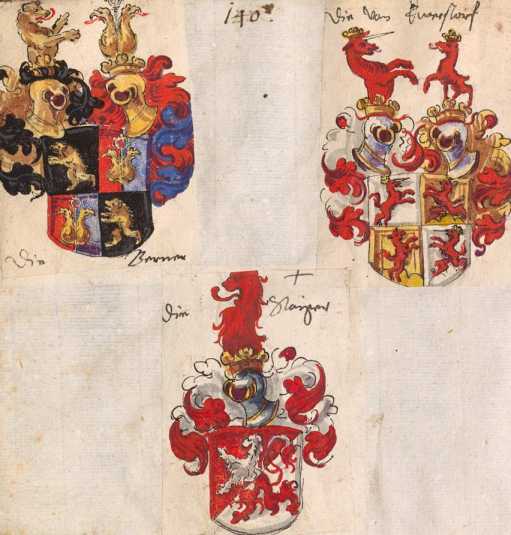 140.
Die Von Euerstorf
Die Berner
Die Staiger